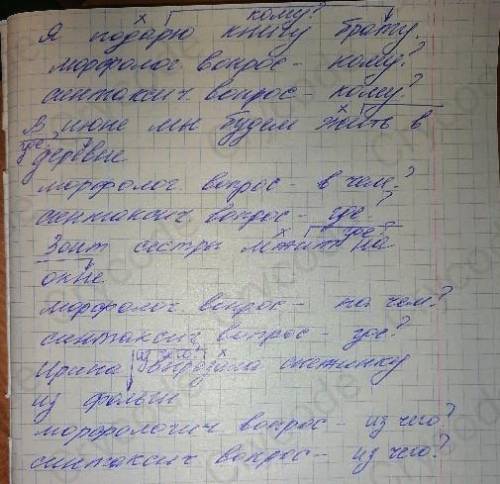 кому?
Я подарю книгу брату.
морфолог. вопрос - кому?
синтаксич. вопрос - кому?
В июне мы будем жить в
где?
деревне.
морфолог. вопрос - в чем?
синтаксич. вопрос - где?
где?
Зонт сестры лежит на
окне.
морфолог. вопрос - на чем?
синтаксич. вопрос - где?
из чего?
Ирина вырезала снежинку
из фольги
морфологич вопрос - из чего?
синтаксич вопрос - из чего?